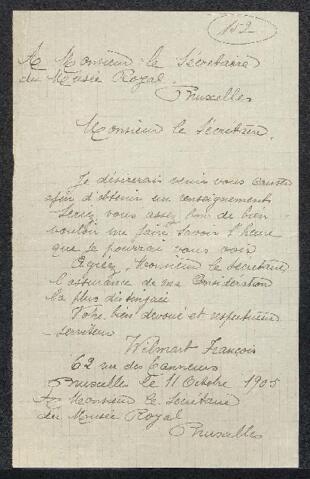 152
A Monsieur le Secrétaire
du Musée Royal
Bruxelles
Monsieur le Secrétaire.
Je désirerais venir vous
afin d'obtenir un renseignements
Serez vous assez bon de bien
vouloir me faire savoir l'heure
que je pourrai vous voir
Agréez Monsieur le Secrétaire
l'assurance de ma Considération
la plus distinguée
Votre bien dévoué et respectueux
serviteur
Wilmart François
62 rue des Tanneurs
Bruxelles le 11 Octobre 1905
A Monsieur le Secrétaire
du Musée Royal
Bruxelles